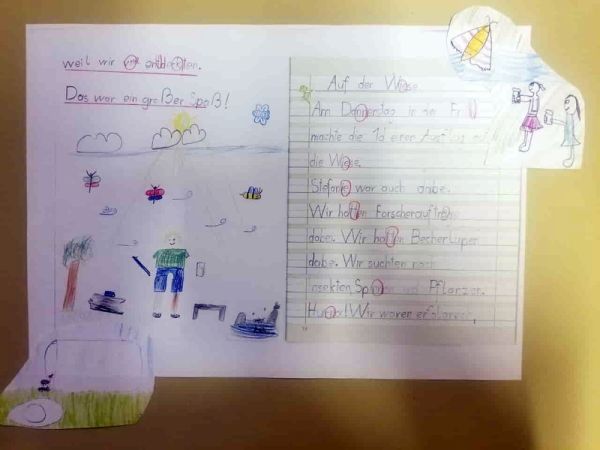 Auf der Wiese
Am Donnerstag in der Fr
machte die 1d einen Ausflug auf
die Wiese.
Stefanie war auch dabe.
Wir hatten Forscheraufträge
dabei. Wir hatten Becherlupen
dabe. Wir suchten nach
Insekten, Spinnen und Pflanzen.
Hurra! Wir waren erfolgreich,
weil wir viel entdeckten.
Das war ein großer Spaß!